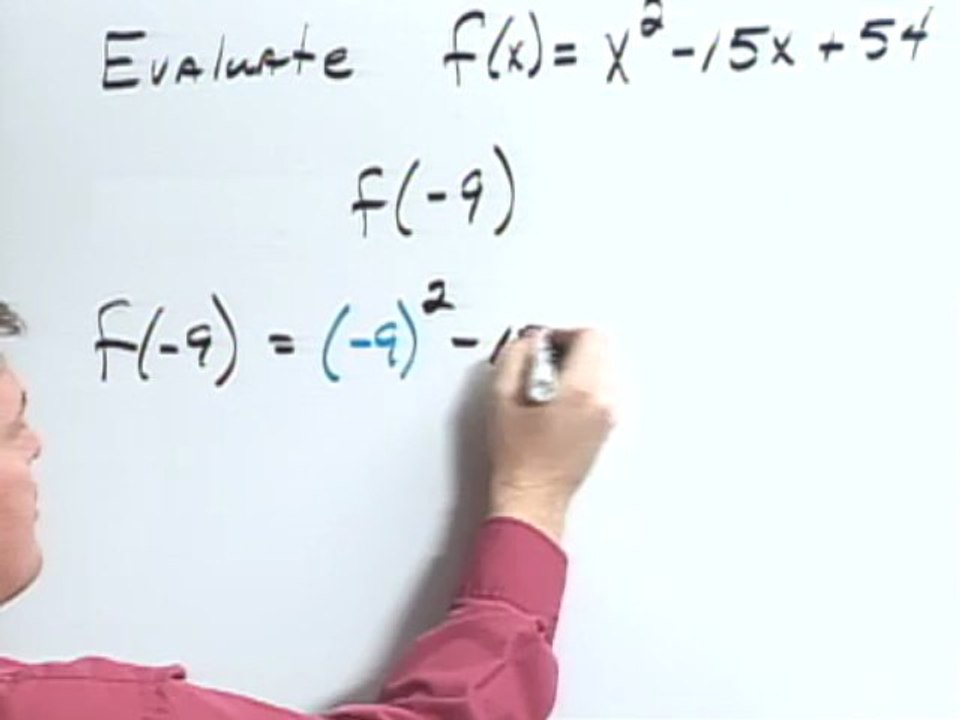 Evaluate f(x) = x² - 15x + 54
f(-9)
f(-9) = (-9)² - 1